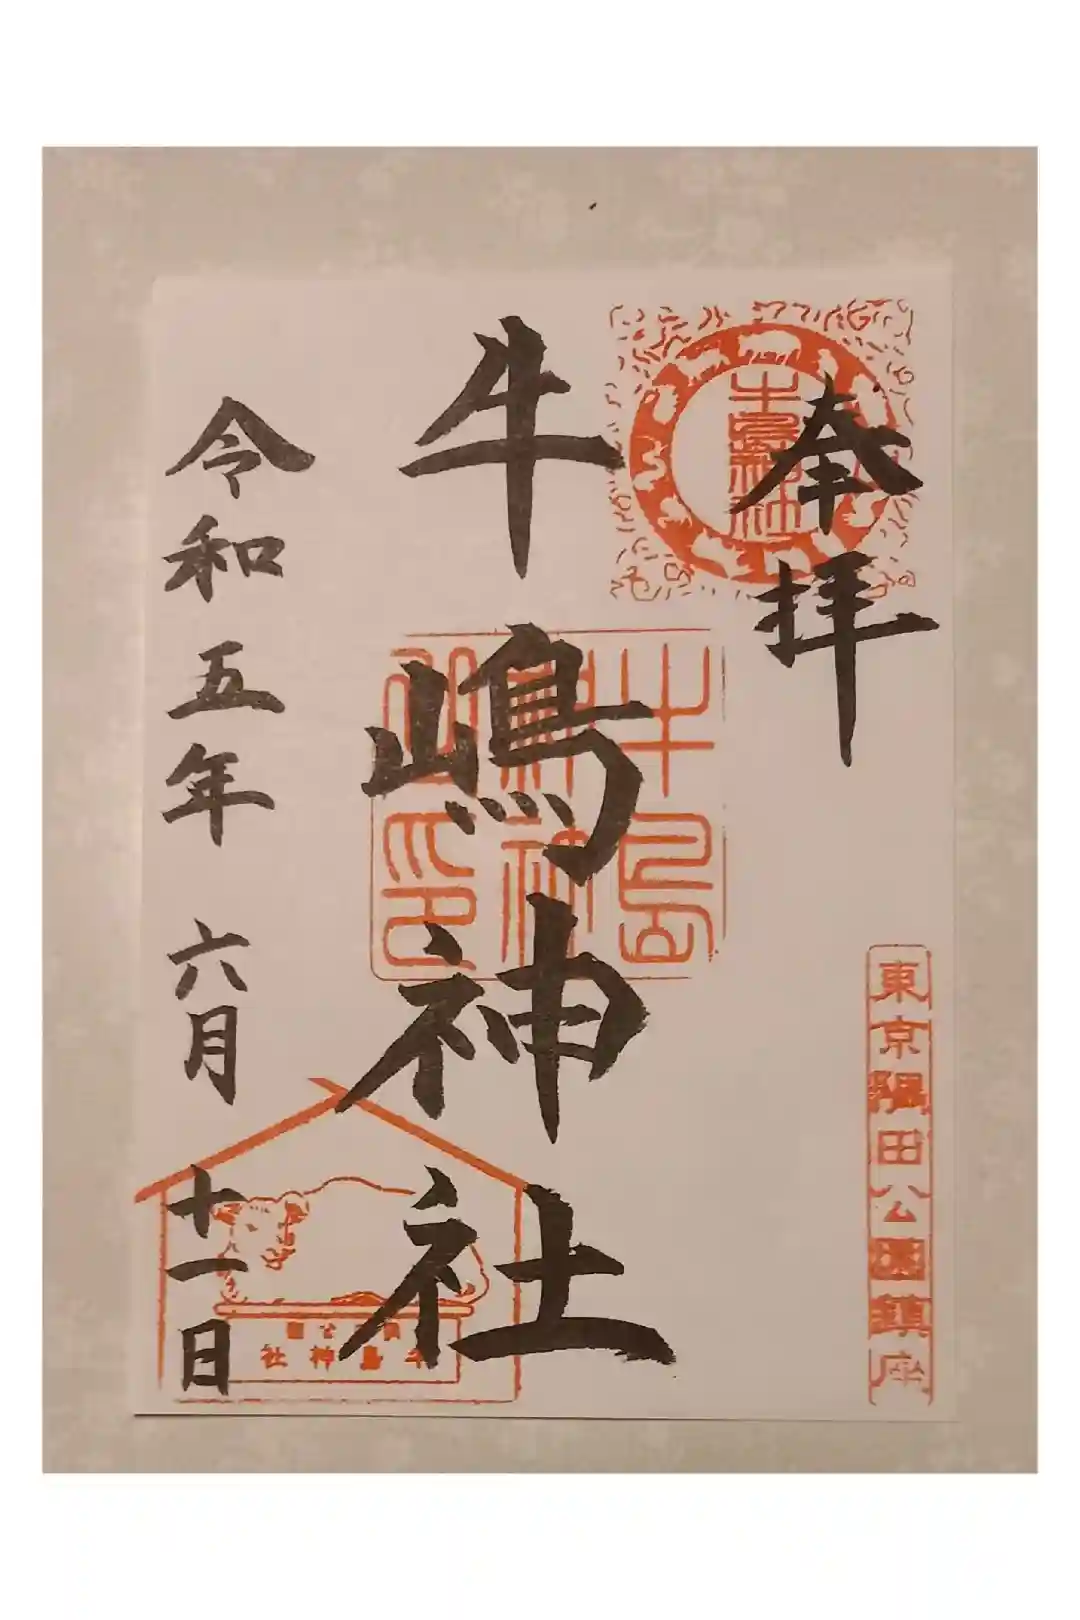 奉拝
牛嶋神社
令和五年 六月 十一日
東京隅田公園鎮座
牛島神社
牛島
神社
之印
牛島神社